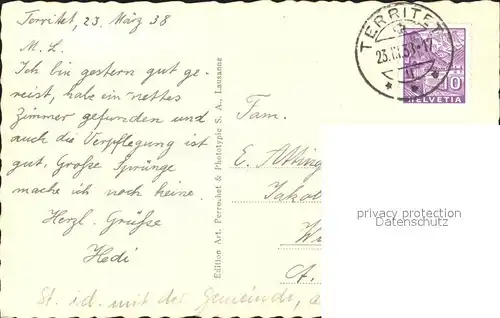 Territet, 23. März 38
M. L.
Ich bin gestern gut ge-
reist, habe ein nettes
Zimmer gefunden und
auch die Verpflegung ist
gut. Große Sprünge
mache ich noch keine.
Herzl. Grüße
Hedi
St. id. mit der Gemeinde,
Edition Art. Perrochet & Phototypie S. A., Lausanne
TERRITET
23.III.38-17
10
HELVETIA
Fam.
E. Atting
Jakob
W
A.
privacy protection
Datenschutz